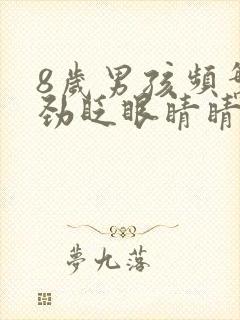 8歲男孩頻繁
劲眨眼睛睛
夢九落